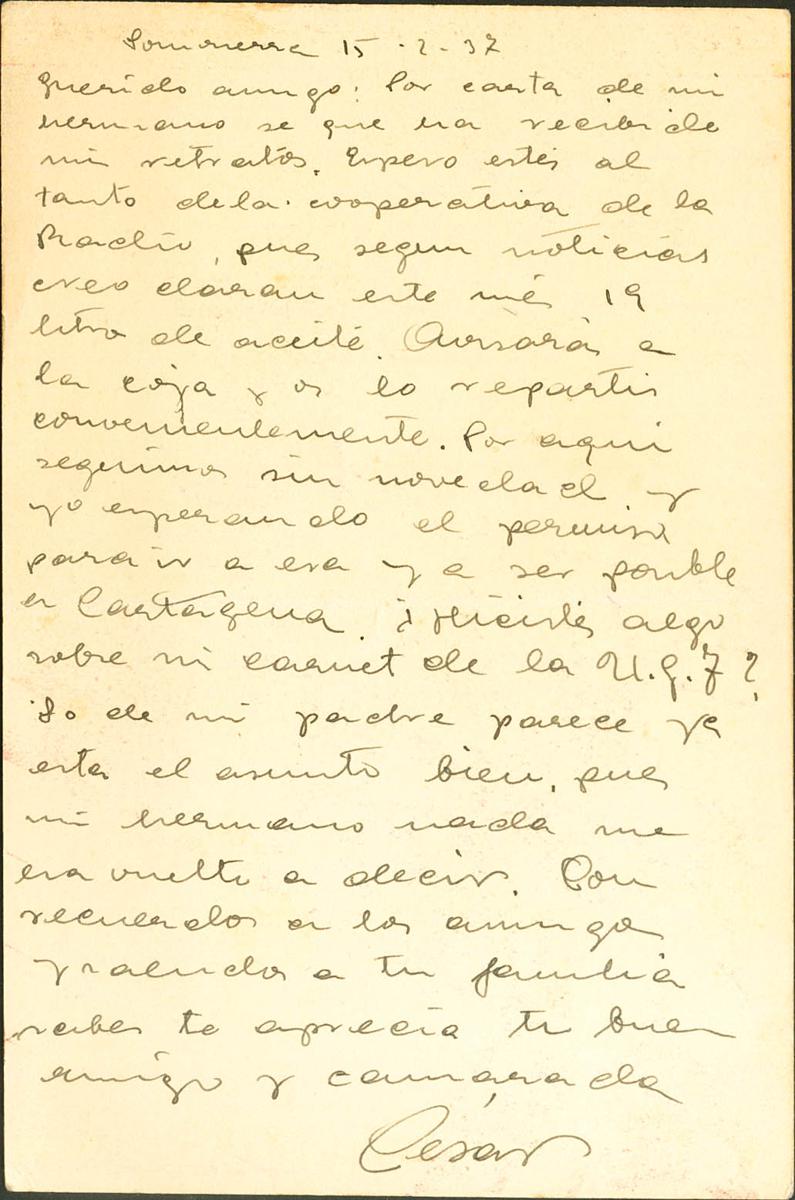 Somosierra 15-2-37
Querido amigo: Por carta de mi
hermano se que ha recibido
mi retratos. Espero estés al
tanto de la cooperativa de la
Radio, pues segun noticias
creo daran este més 19
litro de aceite. Avisarás a
la coja y os lo repartis
convenientemente. Por aqui
seguimos sin novedad y
yo esperando el permiso
para ir a esa y a ser posible
a Cartagena. ¿Hicistes algo
sobre mi carnet de la U.G.T?
Lo de mi padre parece ya
esta el asunto bien, pues
mi hermano nada me
ha vuelto a decir. Con
recuerdos a los amigos
y saludos a tu familia
sabes te aprecia tu buen
amigo y camarada
Cesar